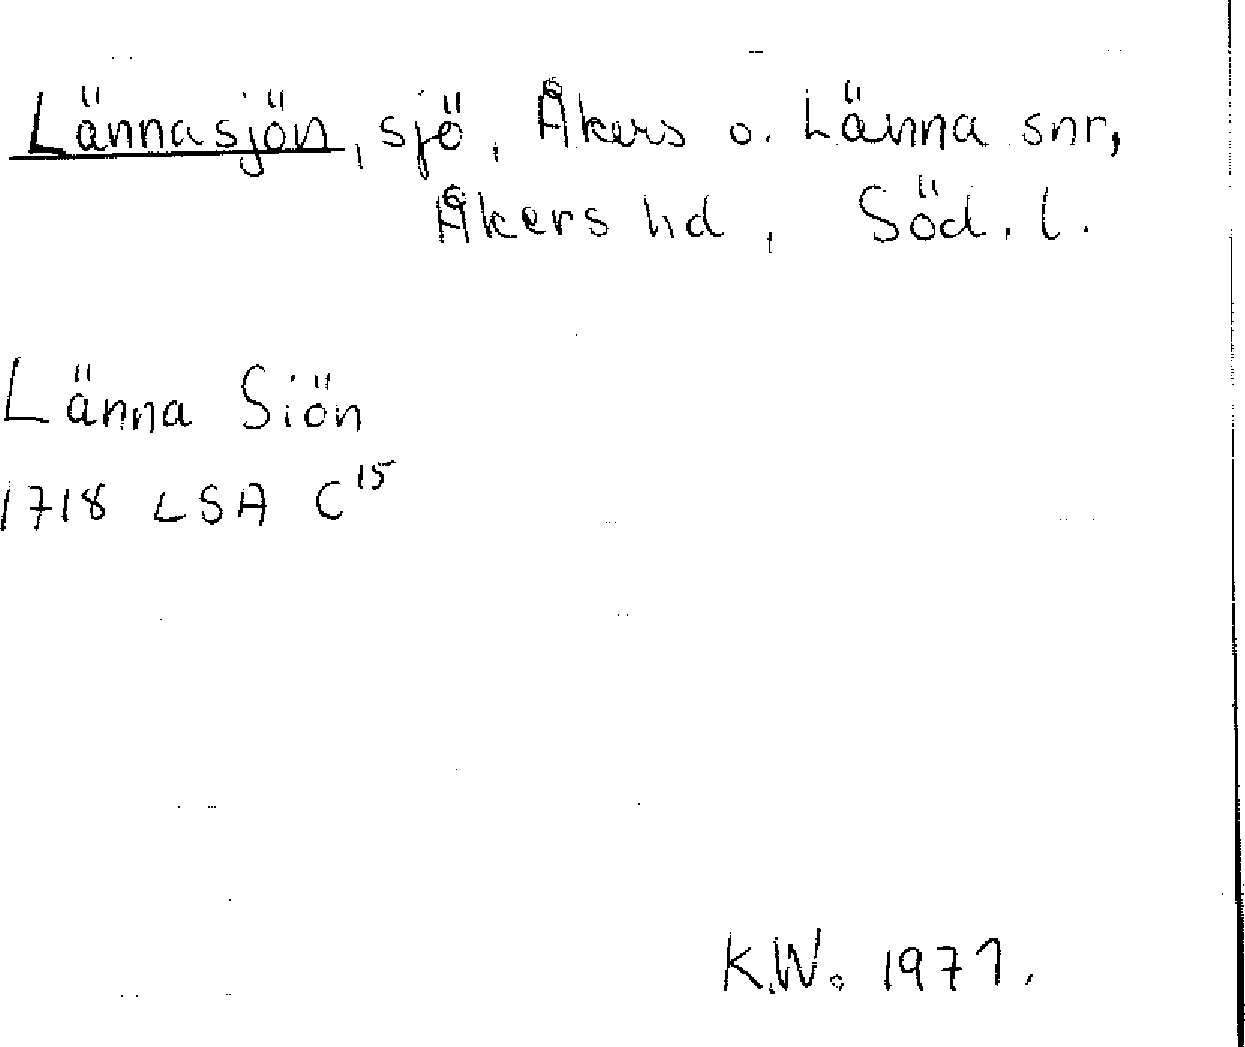 Lännasjön, sjö, Åkers o. Länna snr,
Åkers hd, Söd. l.
Länna Siön
1718 LSA C15
K.W. 1971.